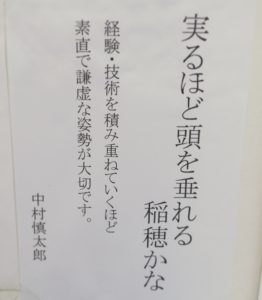 実るほど頭を垂れる
稲穂かな
経験・技術を積み重ねていくほど
素直で謙虚な姿勢が大切です。
中村慎太郎